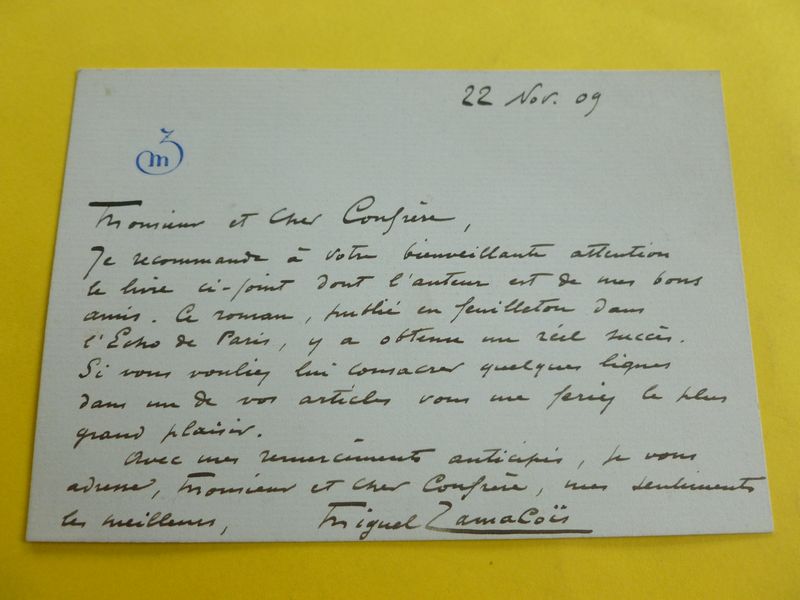 22 Nov. 09
mZ
Monsieur et Cher Confrère,
Je recommande à votre bienveillante attention
le livre ci-joint dont l'auteur est de mes bons
amis. Ce roman, publié en feuilleton dans
l'Echo de Paris, y a obtenu un réel succès.
Si vous vouliez lui consacrer quelques lignes
dans un de vos articles vous me feriez le plus
grand plaisir.
Avec mes remercîments anticipés, je vous
adresse, Monsieur et Cher Confrère, mes sentiments
les meilleurs,
Miguel Zamacoïs